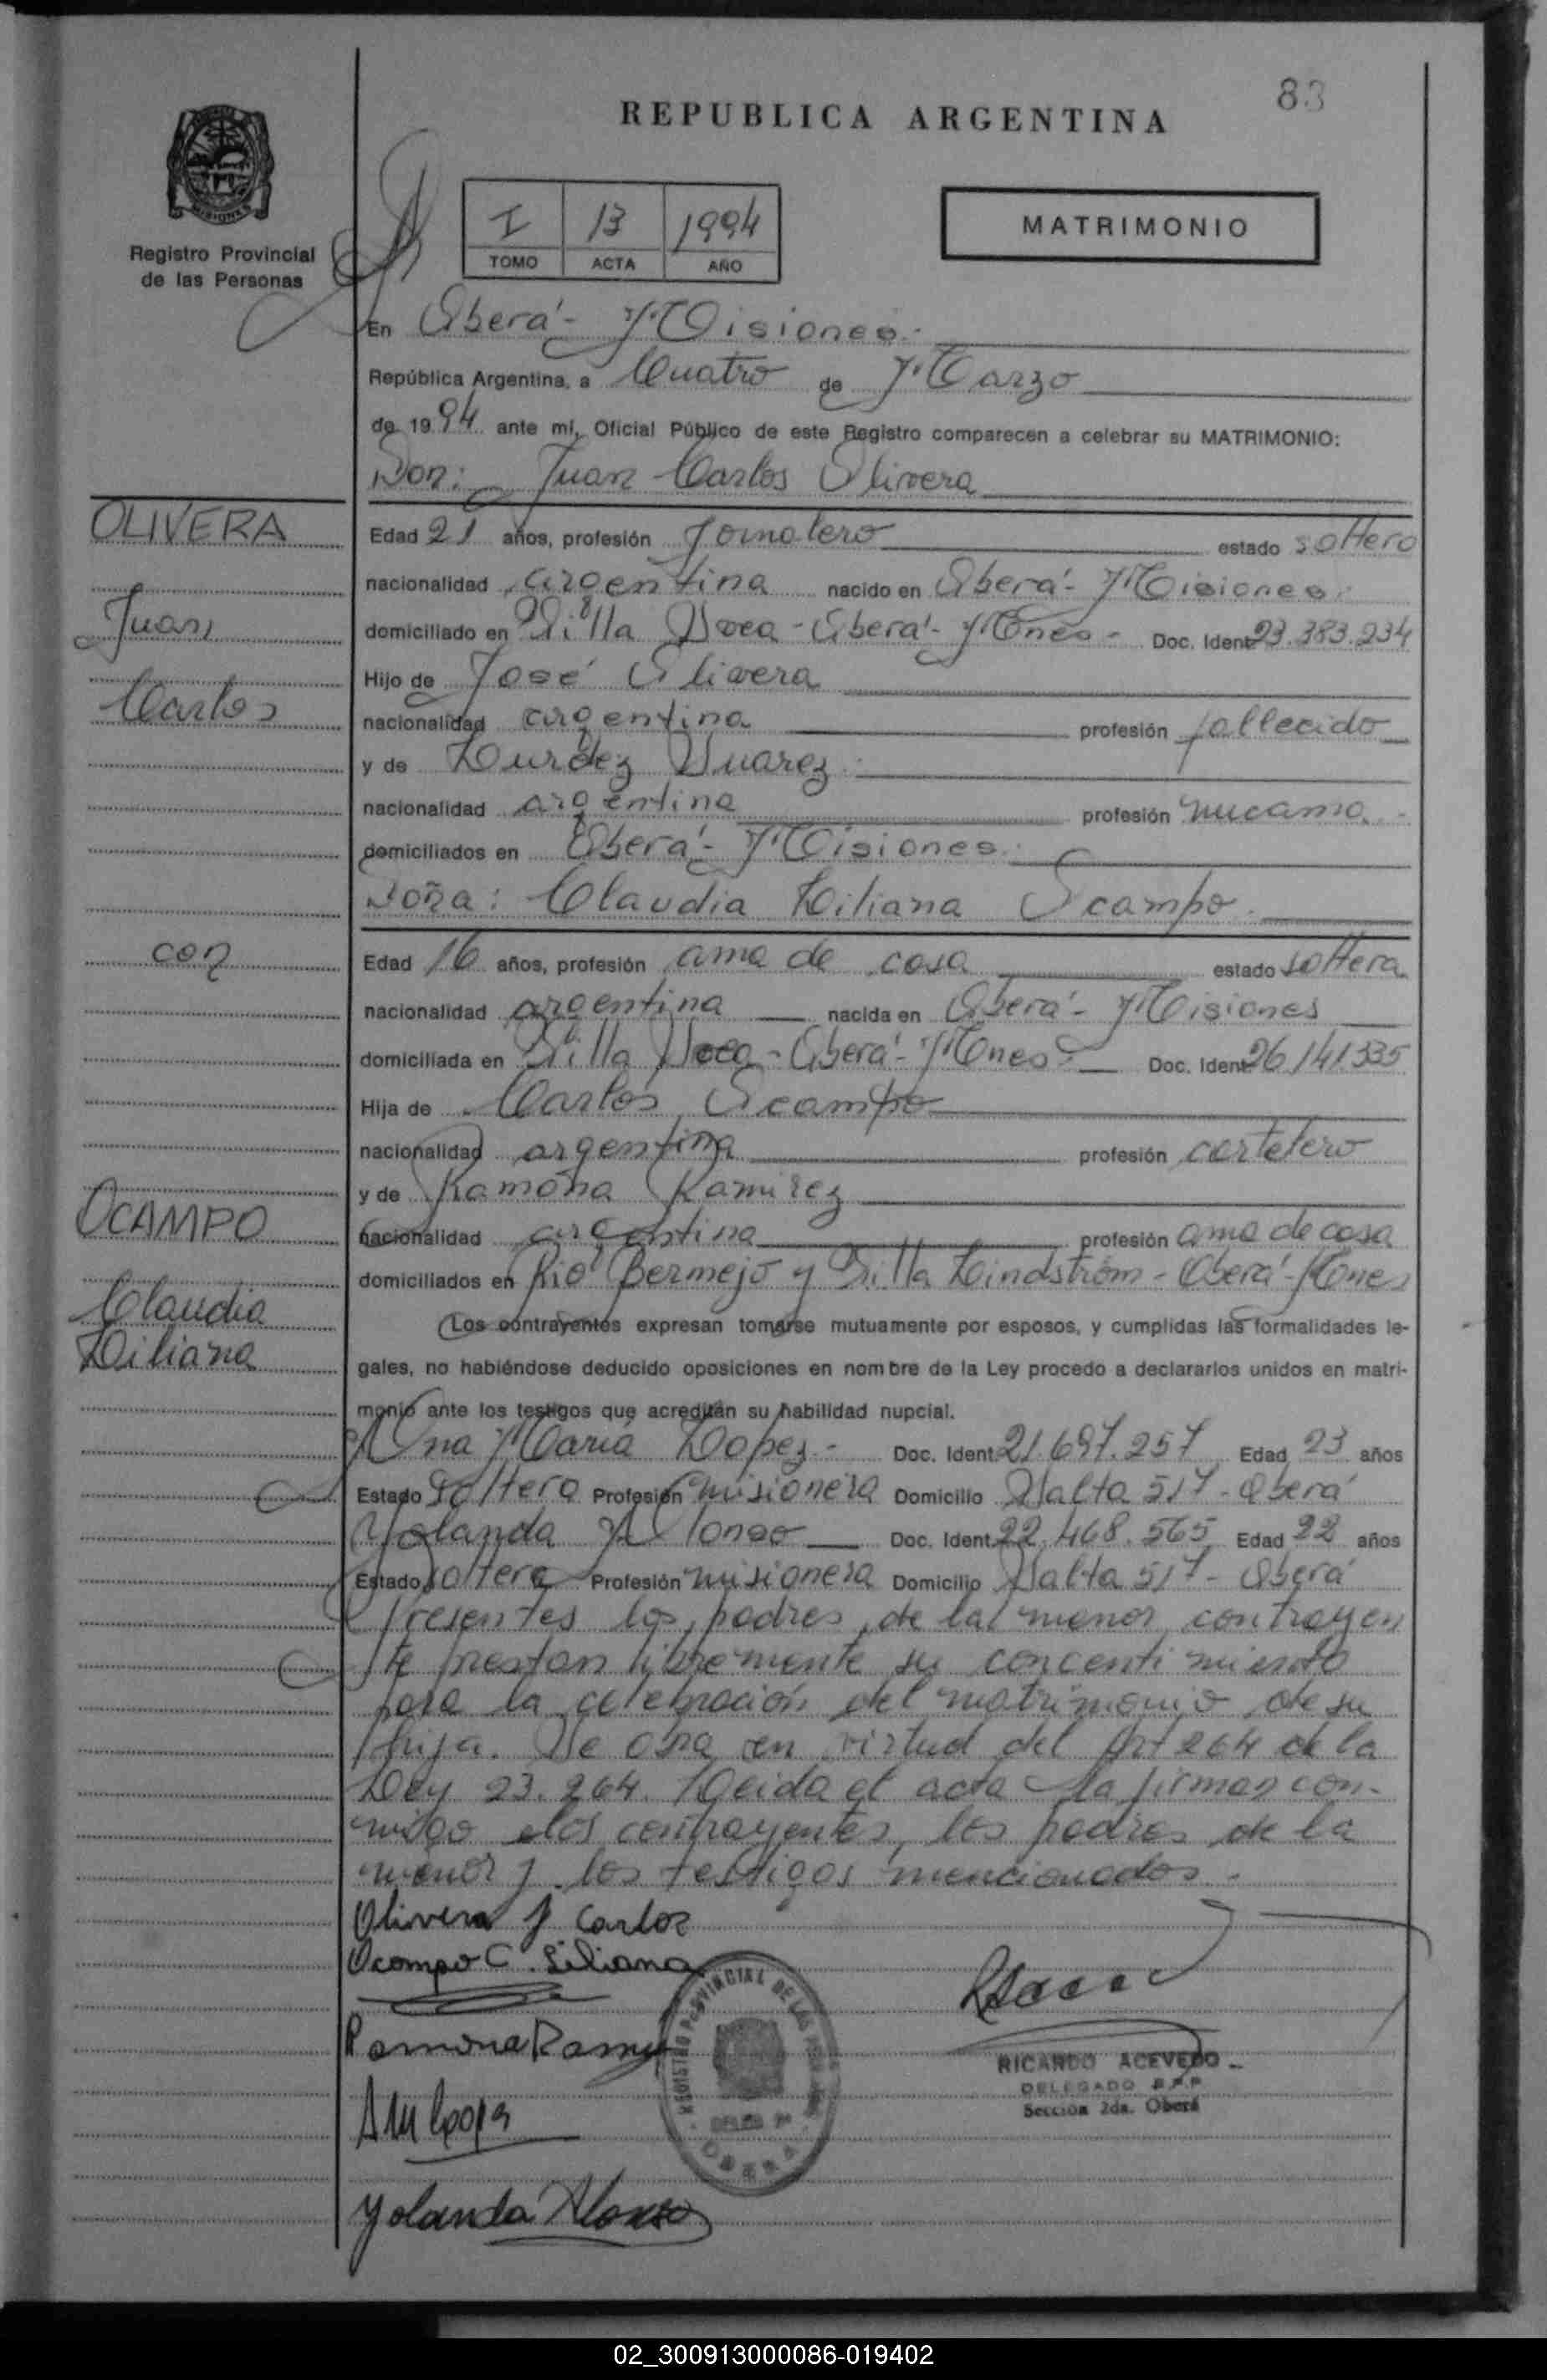 83
REPUBLICA ARGENTINA
MISIONES
Registro Provincial
de las Personas
I 13 1994
TOMO ACTA AÑO
MATRIMONIO
En Oberá - Misiones.
República Argentina, a Cuatro de Marzo
de 1994 ante mí, Oficial Público de este Registro comparecen a celebrar su MATRIMONIO:
Don: Juan Carlos Olivera
OLIVERA
Juan
Carlos
con
OCAMPO
Claudia
Liliana
Edad 21 años, profesión Jornalero estado soltero
nacionalidad argentina nacido en Oberá - Misiones.
domiciliado en Villa - Oberá - Mnes - Doc. Ident 23.383.234
Hijo de José Olivera
nacionalidad argentina profesión fallecido
y de Lurdez Suarez.
nacionalidad argentina profesión mucama.-
domiciliados en Oberá - Misiones.
Doña: Claudia Liliana Ocampo.
Edad 16 años, profesión ama de casa estado soltera
nacionalidad argentina nacida en Oberá - Misiones
domiciliada en Villa - Oberá - Mnes - Doc. Ident 26.141.335
Hija de Carlos Ocampo
nacionalidad argentina profesión
y de Ramona Ramirez
nacionalidad argentina profesión ama de casa
domiciliados en Río Bermejo y Villa Lindström - Oberá - Mnes
Los contrayentes expresan tomarse mutuamente por esposos, y cumplidas las formalidades le-
gales, no habiéndose deducido oposiciones en nombre de la Ley procedo a declararlos unidos en matri-
monio ante los testigos que acreditan su habilidad nupcial.
Ana María Lopez - Doc. Ident 21.697.257 Edad 23 años
Estado Soltera Profesión misionera Domicilio Salta 517 - Oberá
Yolanda Alonso Doc. Ident 22.468.565 Edad 22 años
Estado soltera Profesión misionera Domicilio Salta 517 - Oberá
Presentes los padres de la menor contrayen
te prestan libremente su concentimiento
para la celebración del matrimonio de su
hija. Se obra en virtud del Art 264 de la
Ley 23.264. Leida el acta la firman con-
migo los contrayentes, los padres de la
menor y los testigos mencionados -
Olivera J Carlos
Ocampo C. Liliana
Ramona Ramirez
AM Lopez
Yolanda Alonso
REGISTRO PROVINCIAL DE LAS PERSONAS
OBERA
RICARDO ACEVEDO
DELEGADO R.P.P
Sección 2da. Oberá
02_300913000086-019402